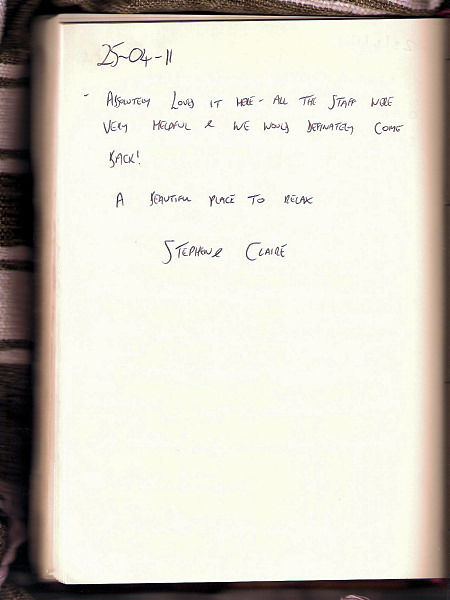 25-04-11
- Absolutely Loved it here - all the staff were
very helpful & we would definately come
back!
A beautiful place to relax
Stephen & Claire